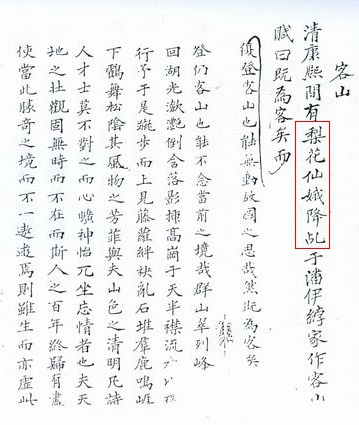 客山
清康熙間有梨花仙娥降乩于潘伊緯家作客山
賦曰既為客矣而
復登客山也能無動故園之思哉然既為客矣
登仍客山也能不念當前之境哉群山萃列峰
回湖光瀲灔倒含落影插高崗于天半襟流
行予于是踱步而上見藤蘿絆袂亂石堆麋鹿鳴崕
下鸛舞松陰其風物之芳菲與夫山色之清明凡詩
人才士莫不對之而心曠神怡兀坐忘情者也夫天
地之壯觀固無時而不在而斯人之百年終歸有盡
使當此勝奇之境而不一遨遊焉則雖生而亦虛此